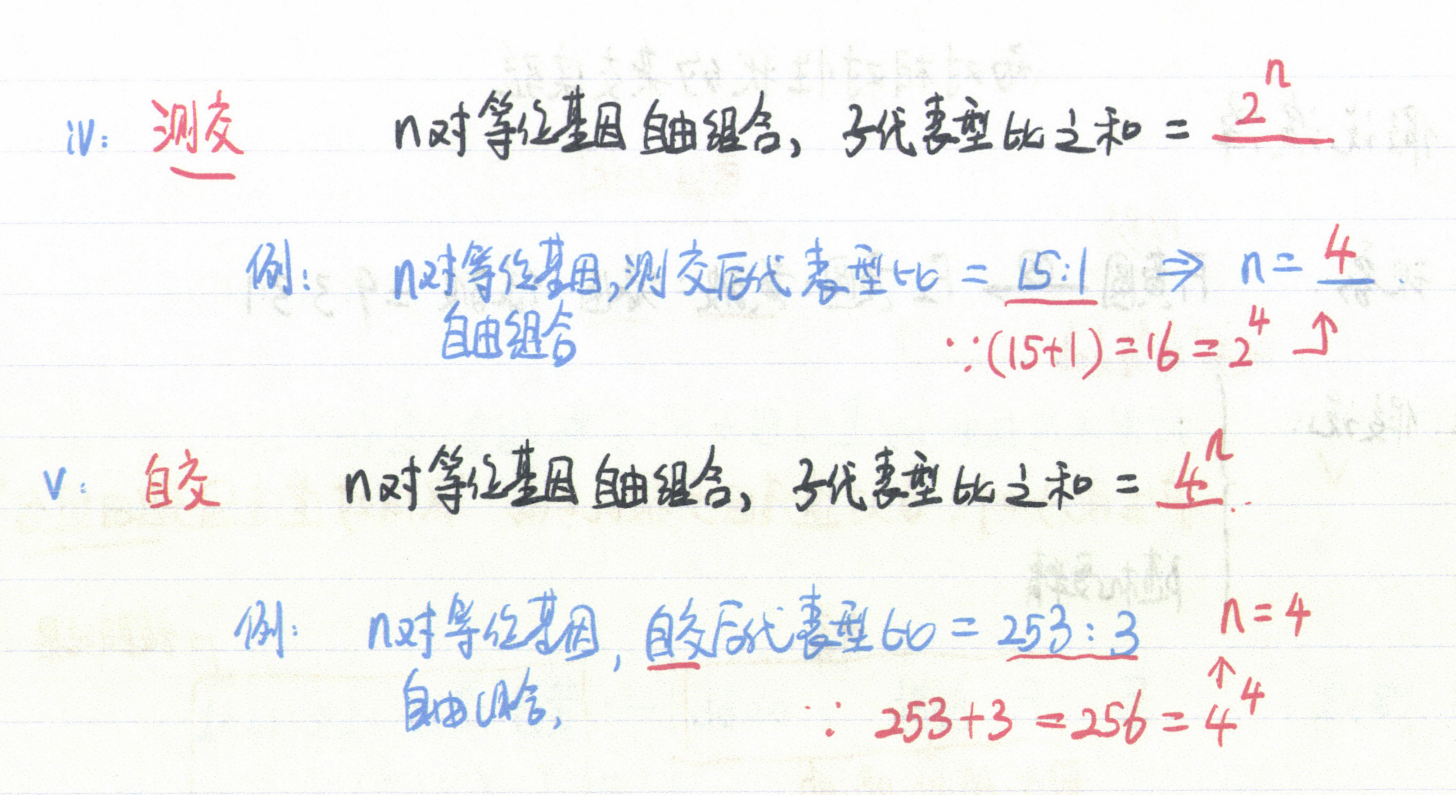 iv: 测交 n对等位基因自由组合, 子代表型比之和 = 2ⁿ
例: n对等位基因,测交后代表型比 = 15:1 ⇒ n = 4
自由组合 ∵(15+1)=16=2⁴ ↑
v: 自交 n对等位基因自由组合, 子代表型比之和 = 4ⁿ..
例: n对等位基因, 自交后代表型比 = 253:3 n=4
自由组合, ∵ 253+3=256=4⁴ ↑